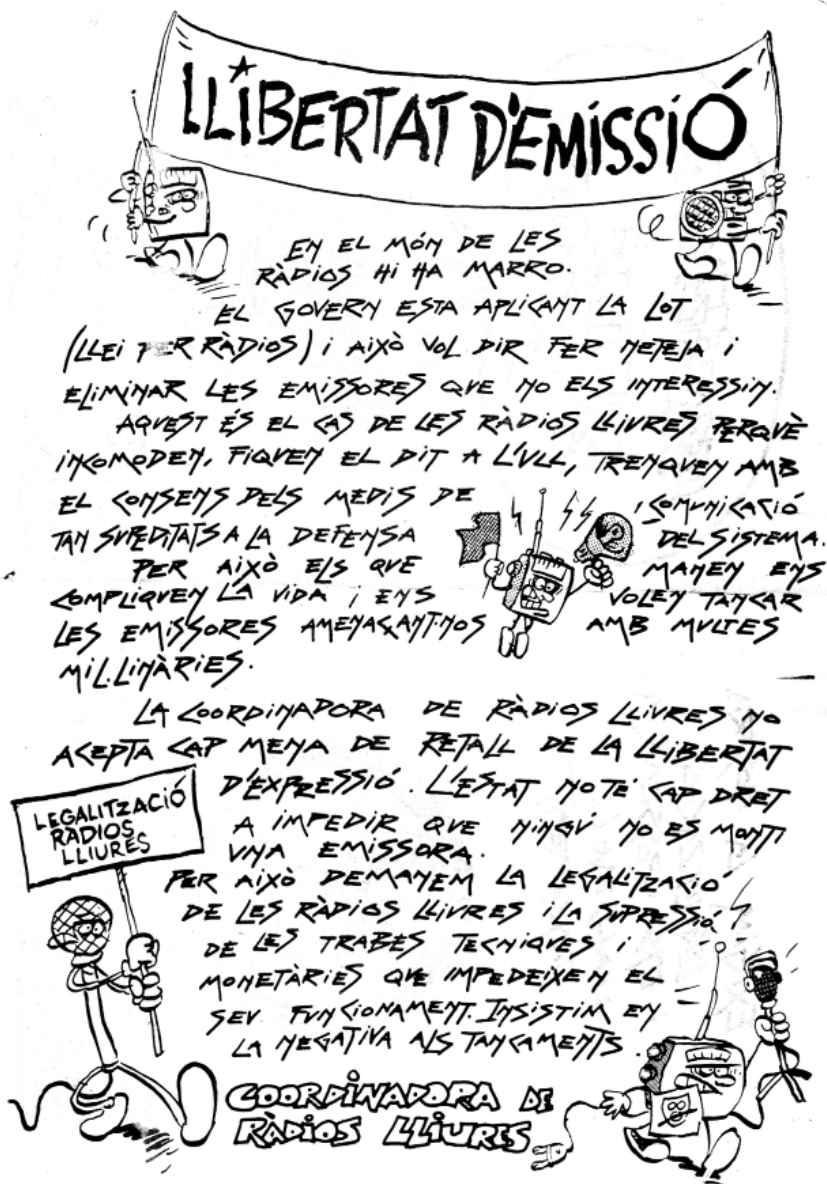 LLIBERTAT D'EMISSIÓ
EN EL MÓN DE LES
RÀDIOS HI HA MARRO.
EL GOVERN ESTA APLICANT LA LOT
(LLEI PER RÀDIOS) i AIXÒ VOL DIR FER NETEJA i
ELIMINAR LES EMISSORES QUE NO ELS INTERESSIN.
AQUEST ÉS EL CAS DE LES RÀDIOS LLIVRES PERQUÈ
INCOMODEN, FIQUEN EL DIT A L'ULL, TRENQUEN AMB
EL CONSENS DELS MEDIS DE COMUNICACIÓ
TAN SUPEDITATS A LA DEFENSA DEL SISTEMA.
PER AIXÒ ELS QUE MANEN ENS
COMPLIQUEN LA VIDA i ENS VOLEN TANCAR
LES EMISSORES AMENAÇANT-NOS AMB MULTES
MIL.LINÀRIES.
LA COORDINADORA DE RÀDIOS LLIVRES NO
ACEPTA CAP MENA DE RETALL DE LA LLIBERTAT
D'EXPRESSIÓ. L'ESTAT NO TÉ CAP DRET
A IMPEDIR QUE NINGÚ NO ES MONTI
UNA EMISSORA.
PER AIXÒ DEMANEM LA LEGALITZACIÓ
DE LES RÀDIOS LLIVRES i LA SUPRESSIÓ
DE LES TRABES TECNIQUES i
MONETÀRIES QUE IMPEDEIXEN EL
SEU FUNCIONAMENT. INSISTIM EN
LA NEGATIVA ALS TANCAMENTS.
LEGALITZACIÓ
RÀDIOS
LLIURES
COORDINADORA DE
RÀDIOS LLIURES